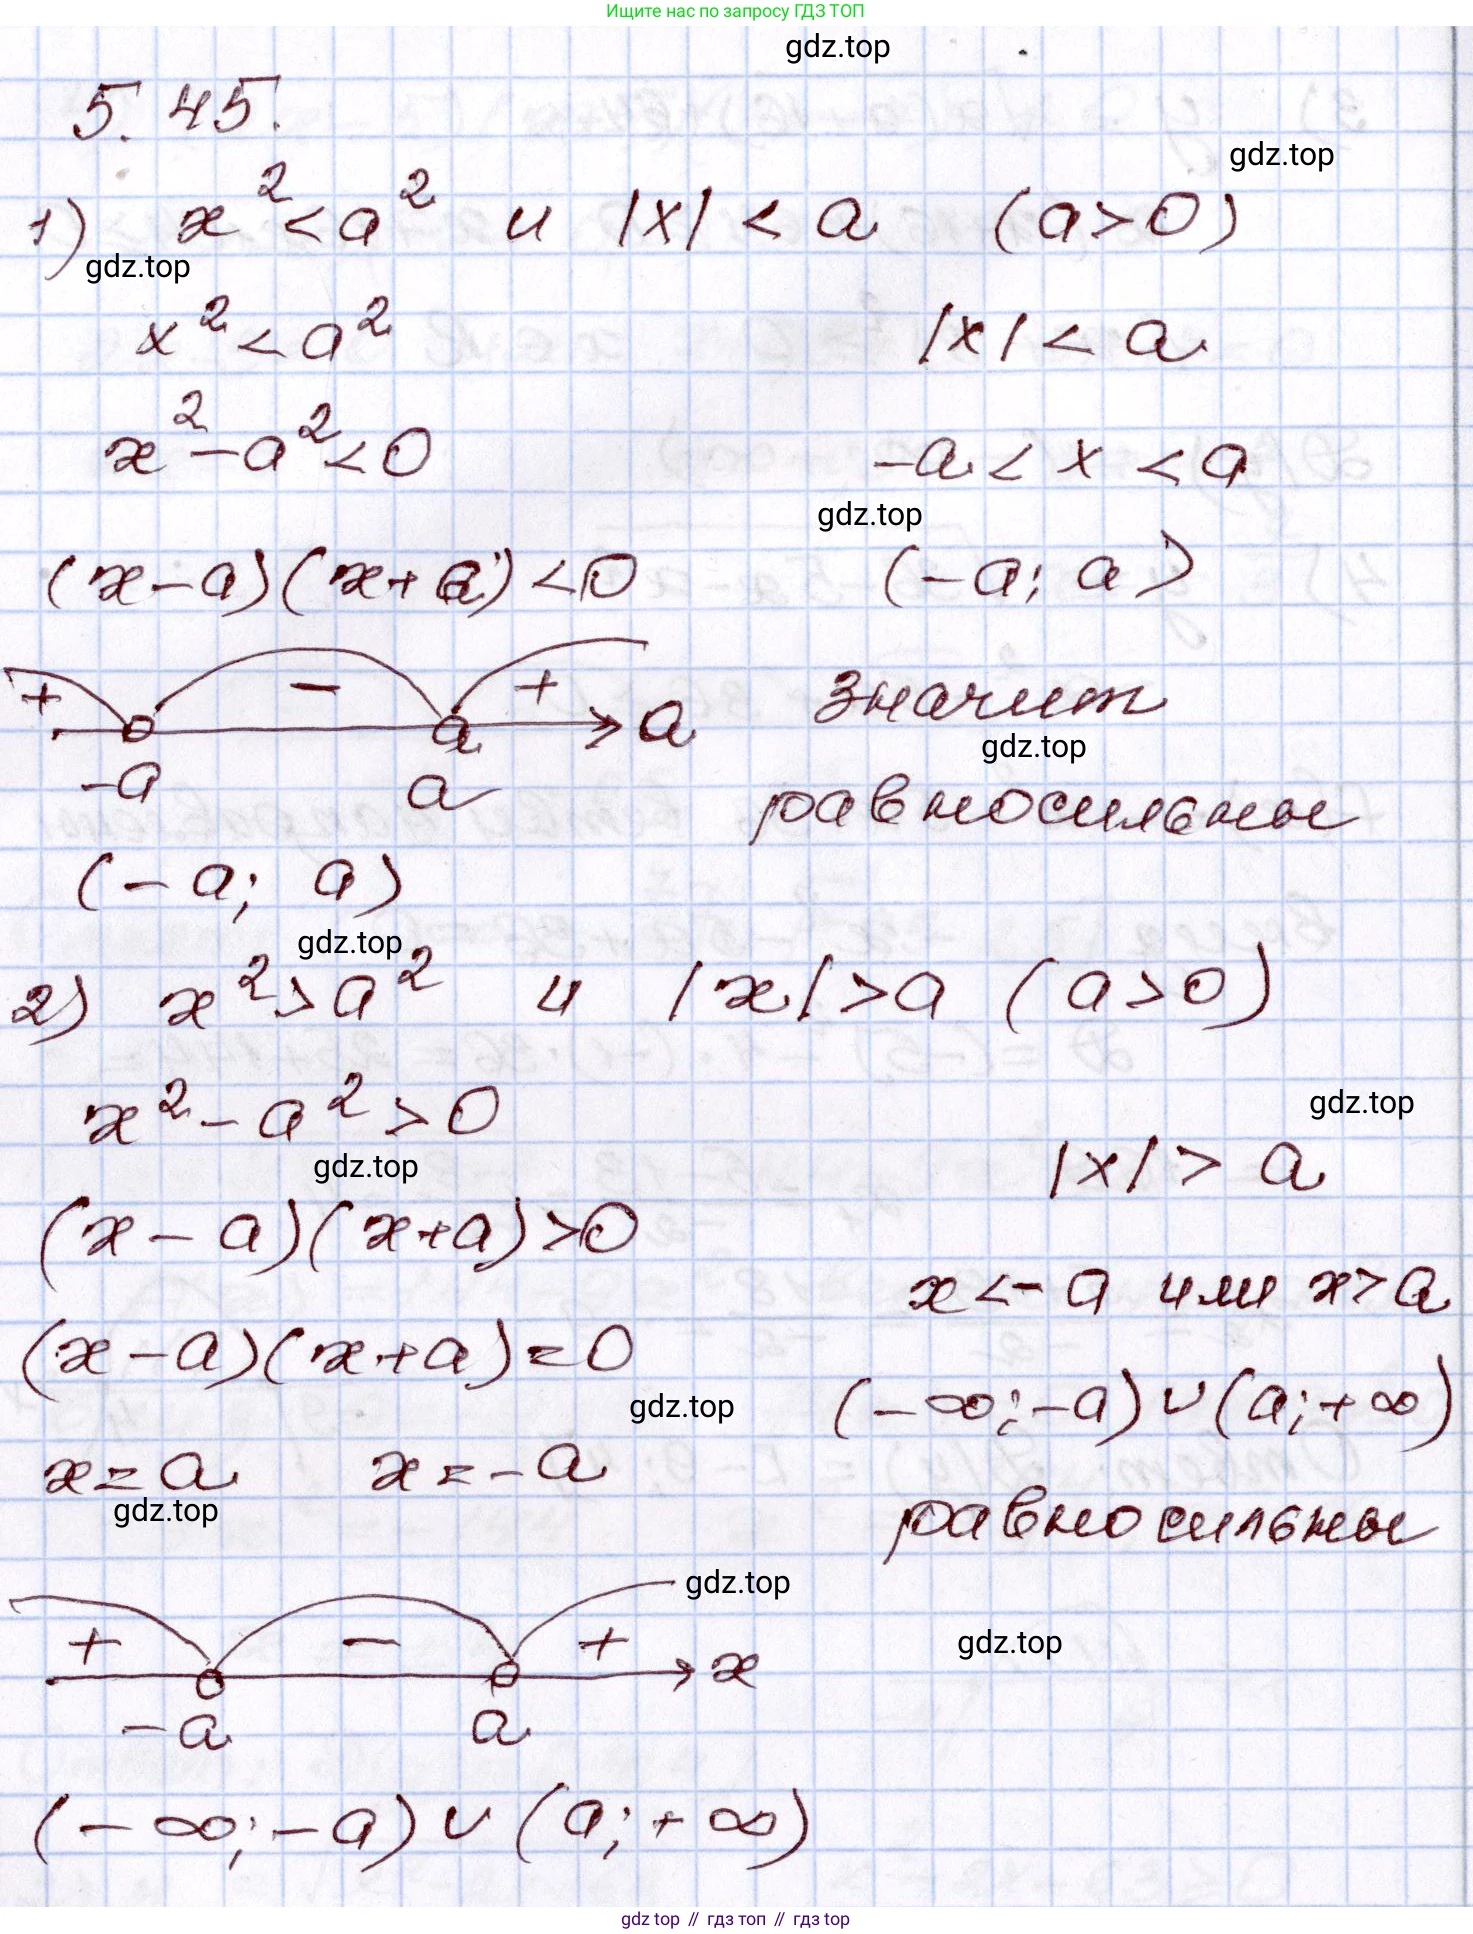 Ищите нас по запросу ГДЗ ТОП
gdz.top
5.45.
gdz.top
1) x² < a² и |x| < a (a>0)
gdz.top
x² < a² |x| < a
x² - a² < 0 -a < x < a
gdz.top
(x-a)(x+a) < 0 (-a; a)
+ - + a
-a a
значит
gdz.top
равносильны
(-a; a)
gdz.top
2) x² > a² и |x| > a (a>0)
x² - a² > 0
gdz.top
|x| > a
gdz.top
(x-a)(x+a) > 0
x < -a или x > a
(x-a)(x+a) = 0
(-∞; -a) ∪ (a; +∞)
gdz.top
x = a x = -a
gdz.top
равносильны
gdz.top
+ - + x
gdz.top
-a a
(-∞; -a) ∪ (a; +∞)
gdz top // гдз топ // gdz top